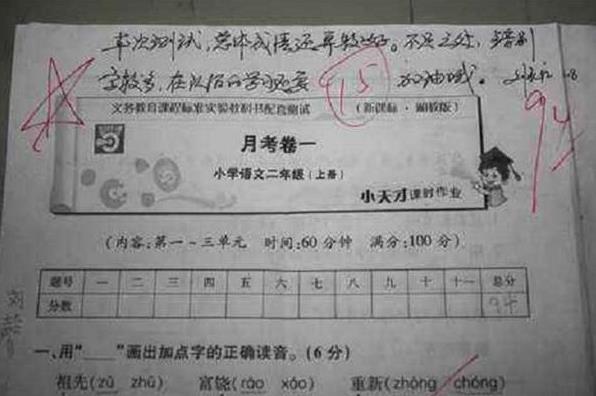 本次测试,总体成绩还算较好。不足之处,错别
字较多,在以后的学习还要 加油哦。
15
94
义务教育课程标准实验教科书配套测试 (新课标·湘教版)
月考卷一
小学语文二年级(上册)
小天才课时作业
(内容:第一~三单元 时间:60分钟 满分:100分)
题号 一 二 三 四 五 六 七 八 九 十 十一 总分
分数 94
一、用"____"画出加点字的正确读音。(6分)
祖先(zǔ zhǔ) 富饶(ráo xáo) 重新(zhòng chóng)